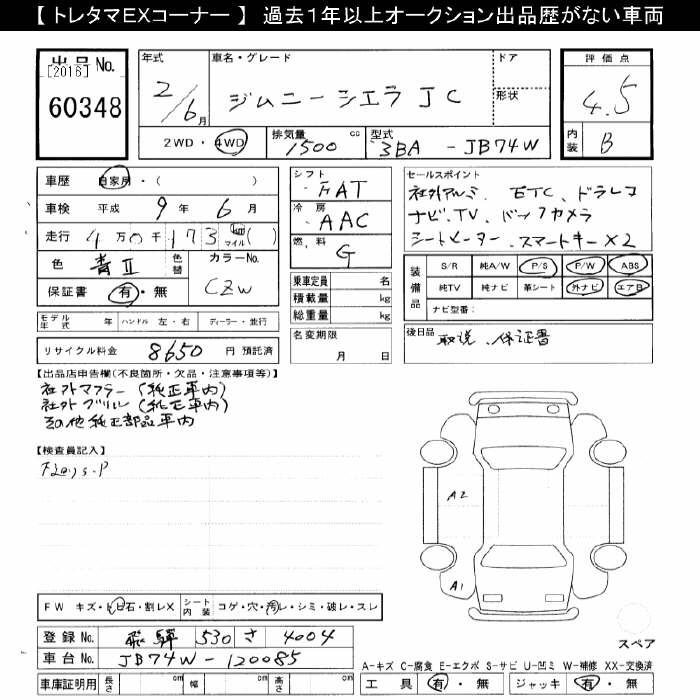 【 トレタマEXコーナー 】 過去1年以上オークション出品歴がない車両
出品 No.
[2016]
60348
年式
2/6月
車名・グレード
ジムニーシエラ JC
ドア
形状
評価点
4.5
内装
B
2WD・4WD
排気量
1500 cc
型式
3BA - JB74W
車歴 自家用・( )
車検 平成 9年 6月
走行 4万0千173 km マイル ( )
色 青II
色替
カラーNo.
CZW
保証書 有・無
シフト
FAT
冷房
AAC
燃料
G
乗車定員 名
積載量 kg
総重量 kg
セールスポイント
社外アルミ、ETC、ドラレコ
ナビ、TV、バックカメラ
シートヒーター、スマートキー×2
装備品
S/R 純A/W P/S P/W ABS
純TV 純ナビ 革シート 外ナビ エアB
ナビ型番:
モデル年式 年 ハンドル 左・右 ディーラー・並行
名変期限
月 日
後日品
取説、保証書
リサイクル料金 8650 円 預託済
【出品店申告欄(不良箇所・欠品・注意事項等)】
社外マフラー(純正車内)
社外グリル(純正車内)
その他純正部品車内
【検査員記入】
A2
A1
FW キズ・ヒ・石・割レX
シート内装 コゲ・穴・汚レ・シミ・破レ・スレ
登録No. 飛騨 530 さ 4004
車台No. JB74W-120085
車庫証明用 長さ cm 幅 cm 高さ cm
スペア
A-キズ C-腐食 E-エクボ S-サビ U-凹ミ W-補修 XX-交換済
工具 有・無 ジャッキ 有・無